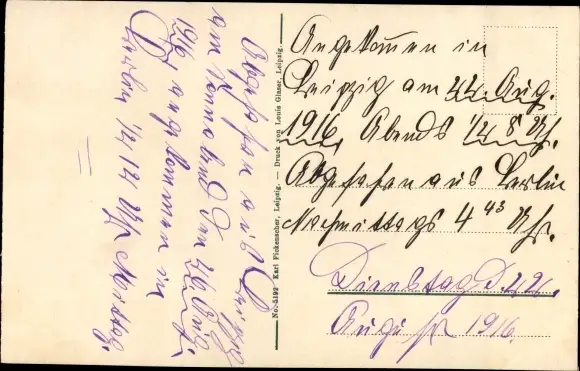 Angekommen in
Leipzig am 22. Aug.
1916, Abends 1/4 8 Uhr.
Abgefahren aus Berlin
Nachmittags 4 45 Uhr.
Dienstag d. 22.
August 1916.
Abgefahren aus Leipzig
am Sonnabend den 26. Aug.
1916 angekommen in
Berlin 1/2 12 Uhr Mittag.
No. 5192 Karl Fickenscher, Leipzig. — Druck von Louis Glaser, Leipzig.